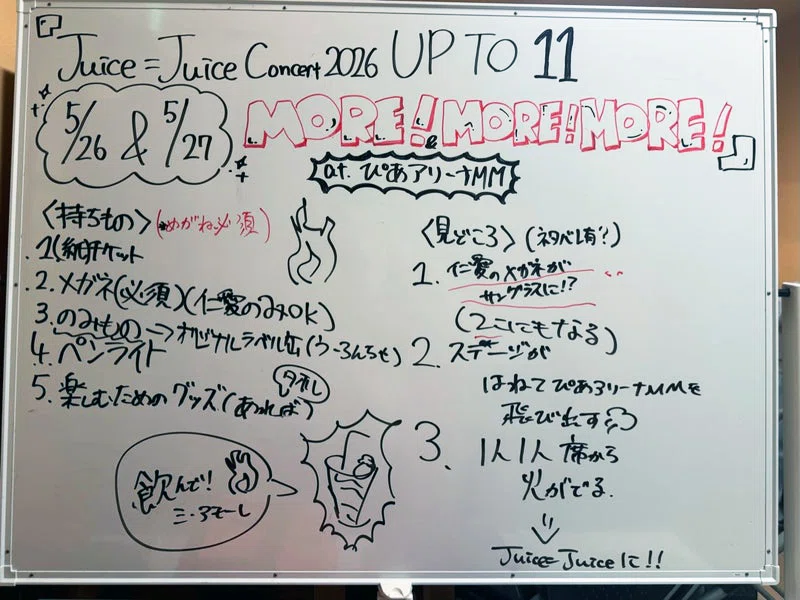 Juice=Juice Concert 2026 UP TO 11
5/26 & 5/27
MORE! MORE! MORE!
at. ぴあアリーナMM
〈持ちもの〉(めがね必須)
1. チケット
2. メガネ(必須)(仁愛のみOK)
3. のみもの→オリジナルラベル缶(うーろんちゃ)
4. ペンライト
5. 楽しむためのグッズ(あれば)
タオル
飲んで!
〈見どころ〉(ネタバレ有?)
1. 仁愛のメガネが
サングラスに!?
(2こにもなる)
2. ステージが
はねてぴあアリーナMMを
飛び出す
3. 1人1人席から
火がでる.
Juice=Juiceに!!